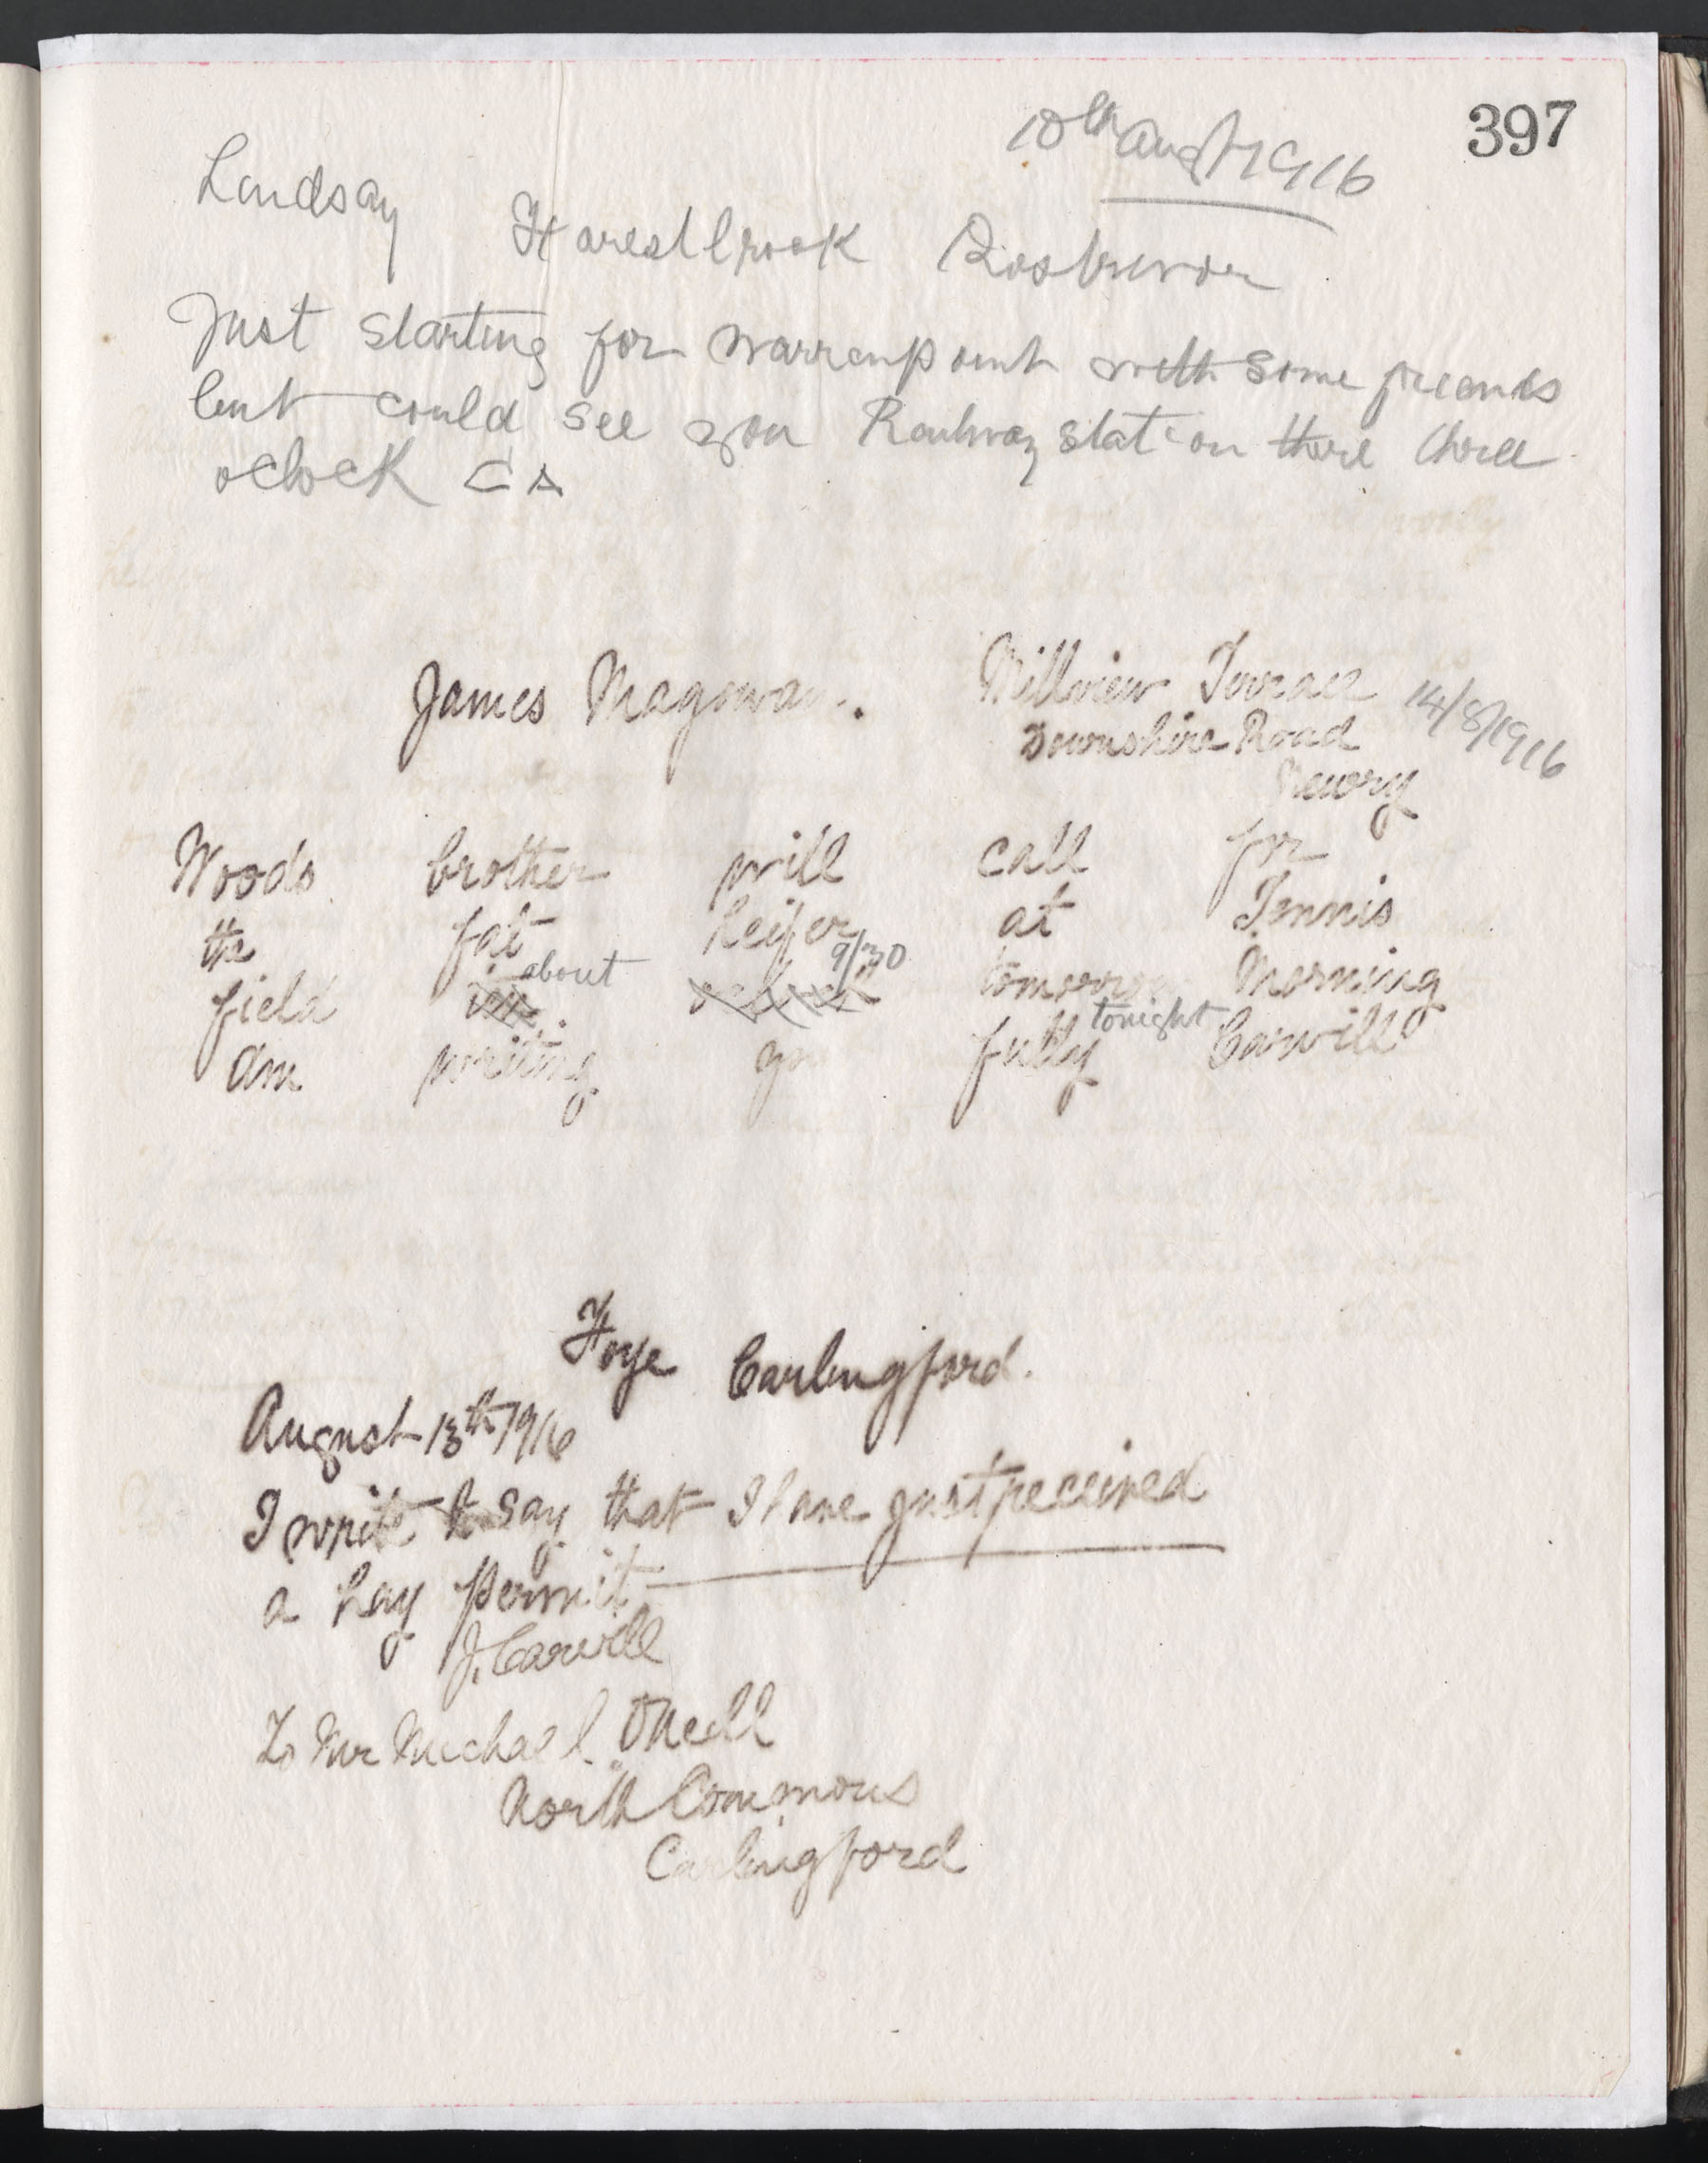 397
10th Augt 1916
Lindsay Harestbrook Rostrevor
Just starting for Warrenpoint with some friends
but could see you Railway station there three
oclock
James Magowan.
Millview Terrace
14/8/1916
Devonshire Road
Newry
Woods brother will call for
the fat heifer at Tennis
field about 9/30 tomorrow Morning
Am writing yo fully tonight Carvill
Foye Carlingford.
August 13th 1916
I write to say that I have just received
a hay permit
J. Carvill
To Mr Michael ONeill
North Commons
Carlingford